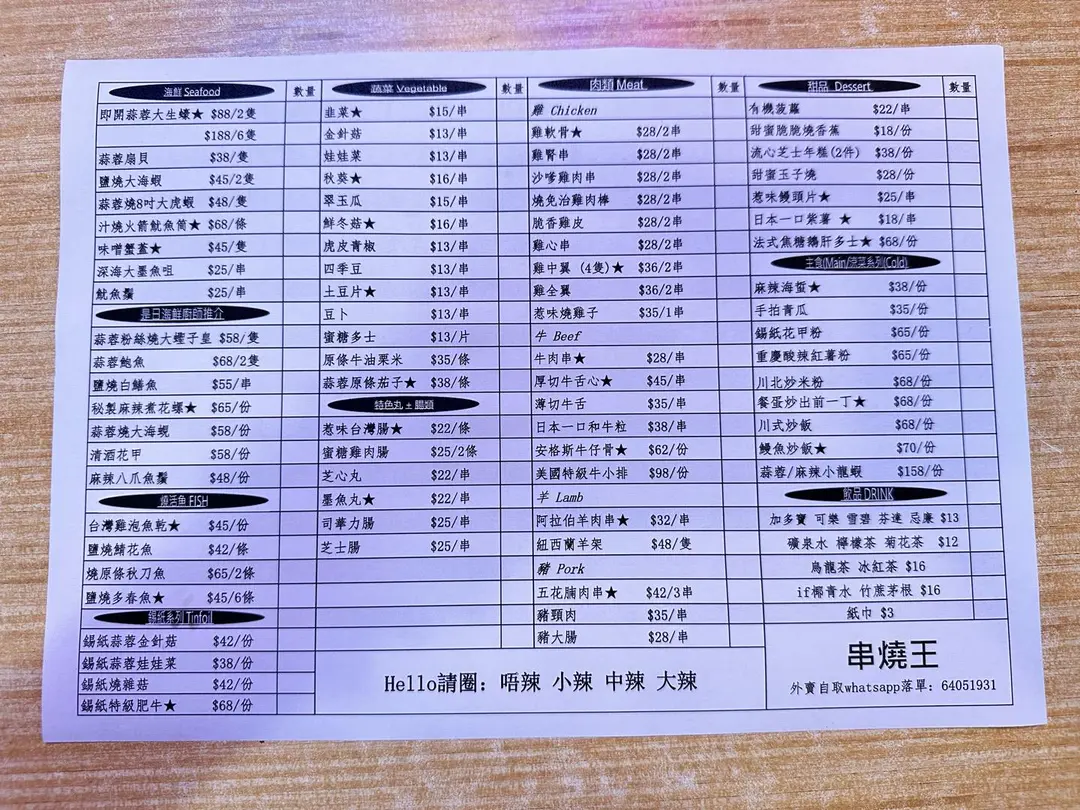 海鮮 Seafood 數量
即開蒜蓉大生蠔★ $88/2隻
$188/6隻
蒜蓉扇貝 $38/隻
鹽燒大海蝦 $45/2隻
蒜蓉燒8吋大虎蝦 $48/隻
汁燒火箭魷魚筒★ $68/條
味噌蟹蓋★ $45/隻
深海大墨魚咀 $25/串
魷魚鬚 $25/串
是日海鮮廚師推介
蒜蓉粉絲燒大蟶子皇 $58/隻
蒜蓉鮑魚 $68/2隻
鹽燒白鱔魚 $55/串
秘製麻辣煮花螺★ $65/份
蒜蓉燒大海蜆 $58/份
清酒花甲 $58/份
麻辣八爪魚鬚 $48/份
燒活魚 FISH
台灣雞泡魚乾★ $45/份
鹽燒鯖花魚 $42/條
燒原條秋刀魚 $65/2條
鹽燒多春魚★ $45/6條
錫紙系列 Tinfoil
錫紙蒜蓉金針菇 $42/份
錫紙蒜蓉娃娃菜 $38/份
錫紙燒雜菇 $42/份
錫紙特級肥牛★ $68/份
蔬菜 Vegetable 數量
韭菜★ $15/串
金針菇 $13/串
娃娃菜 $13/串
秋葵★ $16/串
翠玉瓜 $15/串
鮮冬菇★ $16/串
虎皮青椒 $13/串
四季豆 $13/串
土豆片★ $13/串
豆卜 $13/串
蜜糖多士 $13/片
原條牛油栗米 $35/條
蒜蓉原條茄子★ $38/條
特色丸 + 腸類
惹味台灣腸★ $22/條
蜜糖雞肉腸 $25/2條
芝心丸 $22/串
墨魚丸★ $22/串
司華力腸 $25/串
芝士腸 $25/串
肉類 Meat 數量
雞 Chicken
雞軟骨★ $28/2串
雞腎串 $28/2串
沙嗲雞肉串 $28/2串
燒免治雞肉棒 $28/2串
脆香雞皮 $28/2串
雞心串 $28/2串
雞中翼 (4隻)★ $36/2串
雞全翼 $36/2串
惹味燒雞子 $35/1串
牛 Beef
牛肉串★ $28/串
厚切牛舌心★ $45/串
薄切牛舌 $35/串
日本一口和牛粒 $38/串
安格斯牛仔骨★ $62/份
美國特級牛小排 $98/份
羊 Lamb
阿拉伯羊肉串★ $32/串
紐西蘭羊架 $48/隻
豬 Pork
五花腩肉串★ $42/3串
豬頸肉 $35/串
豬大腸 $28/串
甜品 Dessert 數量
有機菠蘿 $22/串
甜蜜脆脆燒香蕉 $18/份
流心芝士年糕(2件) $38/份
甜蜜玉子燒 $28/份
惹味饅頭片★ $25/串
日本一口紫薯 ★ $18/串
法式焦糖鵝肝多士★ $68/份
主食(Main/涼菜系列(Cold)
麻辣海蜇★ $38/份
手拍青瓜 $35/份
錫紙花甲粉 $65/份
重慶酸辣紅薯粉 $65/份
川北炒米粉 $68/份
餐蛋炒出前一丁★ $68/份
川式炒飯 $68/份
鰻魚炒飯★ $70/份
蒜蓉/麻辣小龍蝦 $158/份
飲品 DRINK
加多寶 可樂 雪碧 芬達 忌廉 $13
礦泉水 檸檬茶 菊花茶 $12
烏龍茶 冰紅茶 $16
if椰青水 竹蔗茅根 $16
紙巾 $3
Hello請圈：唔辣 小辣 中辣 大辣
串燒王
外賣自取whatsapp落單：64051931